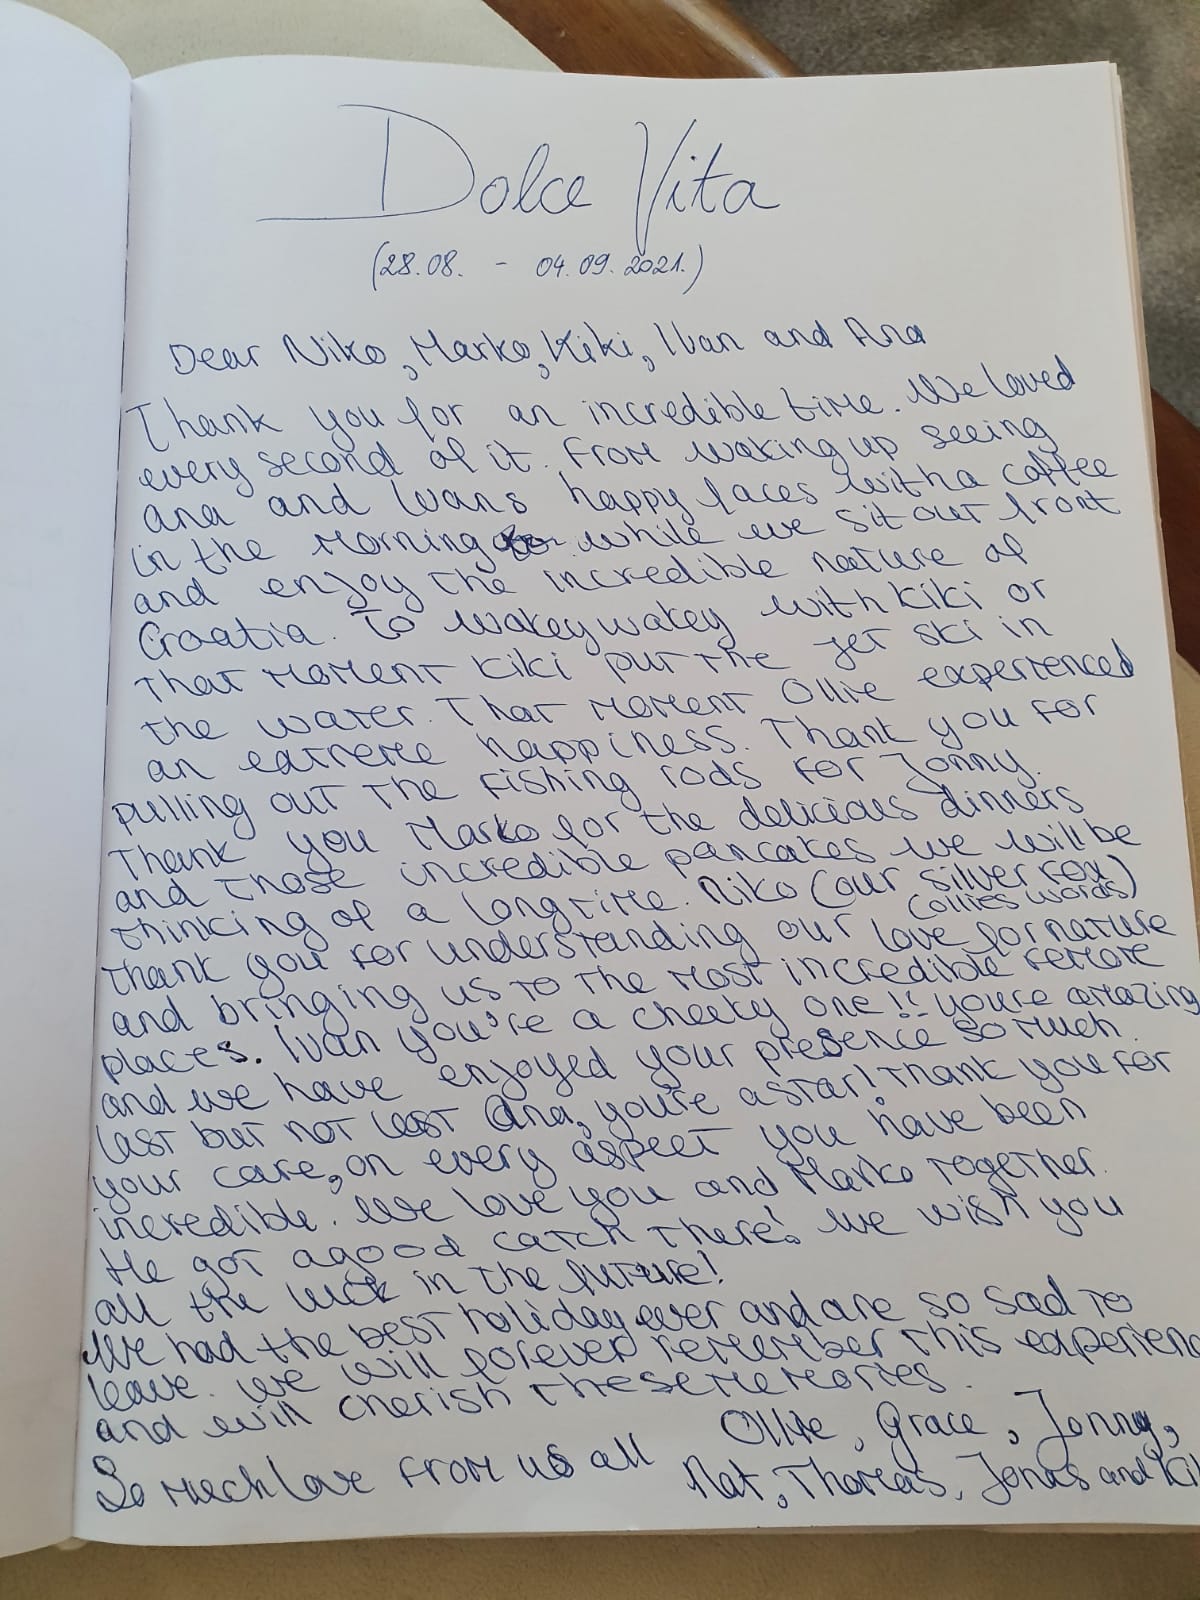 Dolce Vita
(28.08. - 04.09.2021.)
Dear Niko, Marko, Kiki, Ivan and Ana
Thank you for an incredible time. We loved
every second of it. From waking up seeing
ana and Ivans happy faces with a coffee
in the morning while we sit out front
and enjoy the incredible nature of
Croatia. To wakey wakey with kiki or
that moment kiki put the jet ski in
the water. That moment Ollie experienced
an extreme happiness. Thank you for
pulling out the fishing rods for Jonny.
Thank you Marko for the delicious dinners
and those incredible pancakes we will be
thinking of a long time. Niko (our silver fox)
(ollies words)
thank you for understanding our love for nature
and bringing us to the most incredible remote
places. Ivan you're a cheeky one!! you're amazing
and we have enjoyed your presence so much.
last but not least Ana, you're a star! Thank you for
your care, on every aspect you have been
incredible. We love you and Marko together.
He got a good catch there! We wish you
all the luck in the future!
We had the best holiday ever and are so sad to
leave. We will forever remember this experienc
and will cherish these memories.
So much love from us all Ollie, Grace, Jonny,
Nat, Thomas, Jonas and